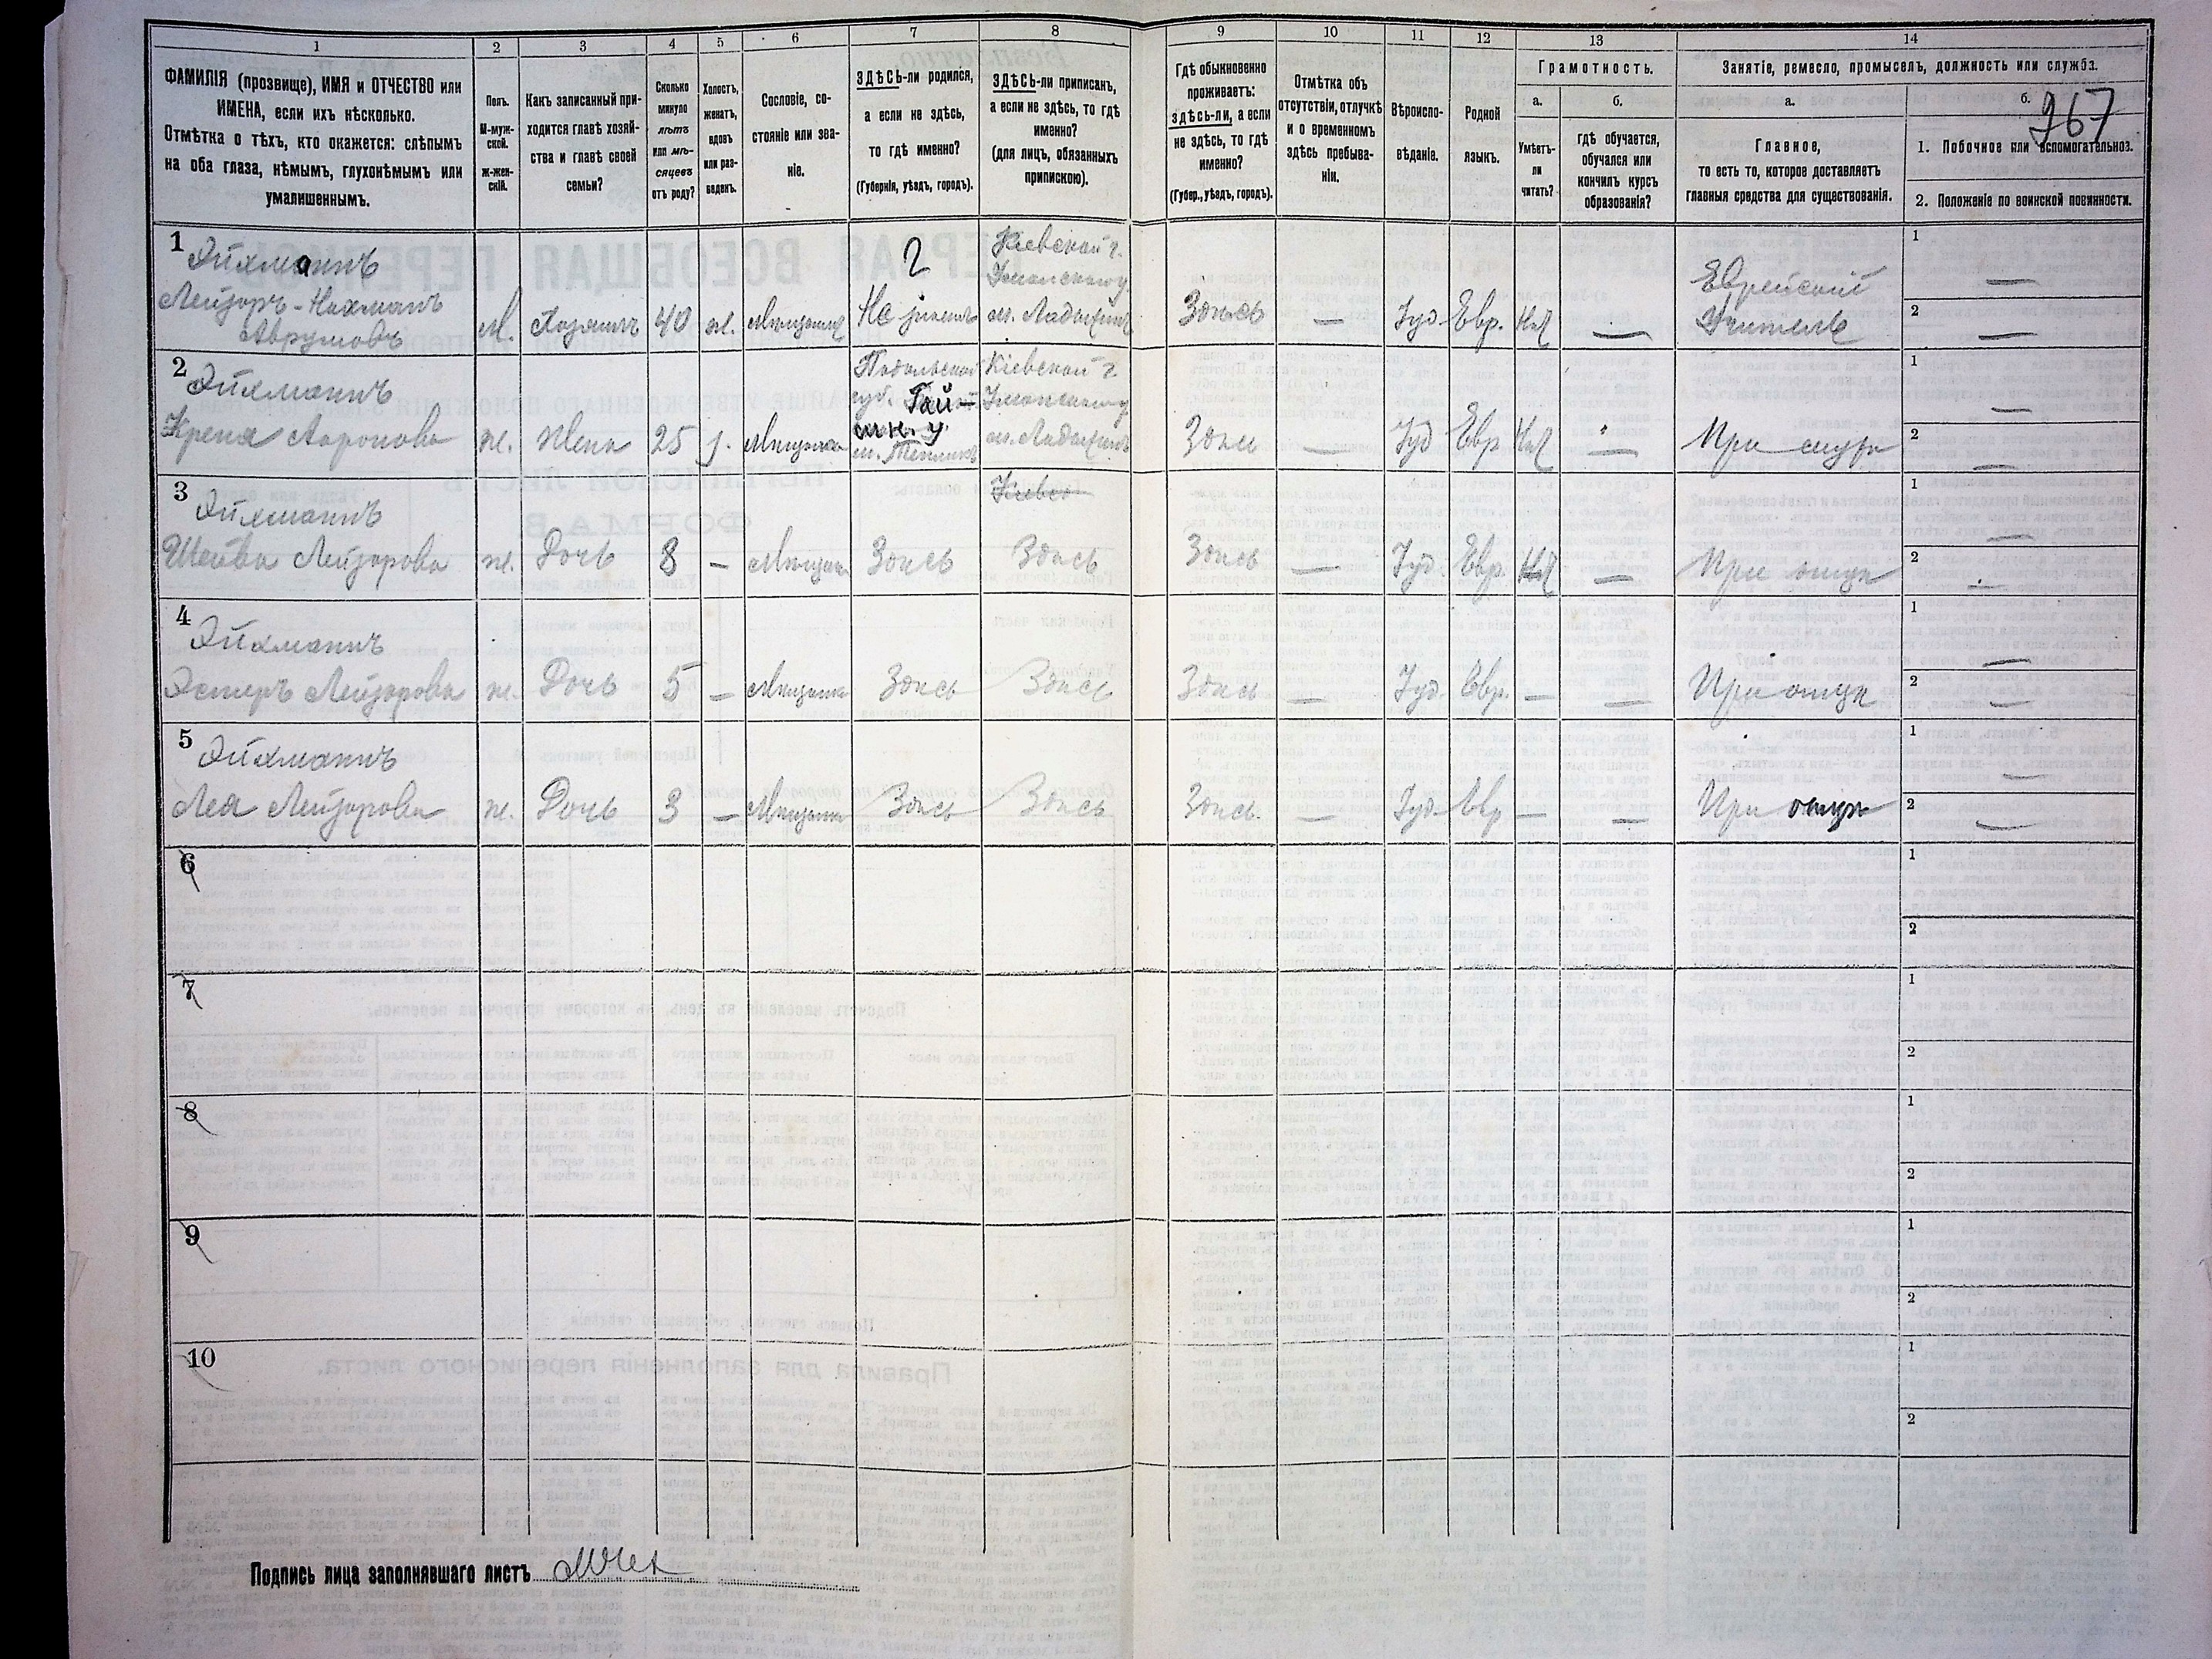 1
2
3
4
5
6
7
8
9
10
11
12
13
14
ФАМИЛІЯ (прозвище), ИМЯ и ОТЧЕСТВО или
ИМЕНА, если ихъ нѣсколько.
Отмѣтка о тѣхъ, кто окажется: слѣпымъ
на оба глаза, нѣмымъ, глухонѣмымъ или
умалишеннымъ.
Полъ.
М-муж-
ской.
ж-жен-
скій.
Какъ записанный при-
ходится главѣ хозяй-
ства и главѣ своей
семьи?
Сколько
минуло
лѣтъ
или мѣ-
сяцевъ
отъ роду?
Холостъ,
женатъ,
вдовъ
или раз-
веденъ.
Сословіе, со-
стояніе или зва-
ніе.
ЗДѢСЬ-ли родился,
а если не здѣсь,
то гдѣ именно?
(Губернія, уѣздъ, городъ).
ЗДѢСЬ-ли приписан,
а если не здѣсь, то гдѣ
именно?
(для лицъ, обязанныхъ
припискою).
Гдѣ обыкновенно
проживаетъ:
здѣсь-ли, а если
не здѣсь, то гдѣ
именно?
(Губер., уѣздъ, городъ).
Отмѣтка объ
отсутствіи, отлучкѣ
и о временномъ
здѣсь пребыва-
ніи.
Вѣроиспо-
вѣданіе.
Родной
языкъ.
Грамотность.
а.
б.
Умѣетъ-
ли
читать?
гдѣ обучается,
обучался или
кончилъ курсъ
образованія?
Занятіе, ремесло, промыселъ, должность или служба.
а.
б.
267
Главное,
то есть то, которое доставляетъ
главныя средства для существованія.
1. Побочное или вспомогательное.
2. Положеніе по воинской повинности.
1
Эйхманнъ
Лейзоръ-Нахманъ
Аврумовъ
м.
Хозяинъ
40
ж.
Мѣщанинъ
?
Не знаетъ
Кіевской г.
Уманского у.
м. Ладыжинъ
Здѣсь
—
Іуд.
Евр.
Нѣт
—
Еврейскій
Учитель
1 —
2 —
2
Эйхманнъ
Креня Аароновa
ж.
Жена
25
з.
Мѣщанка
Подольской
губ. Гай-
шн. у.
м. Тепликъ
Кіевской г.
Уманского у.
м. Ладыжинъ
Здѣсь
—
Іуд
Евр
Нѣт
—
При мужѣ
1 —
2 —
3
Эйхманнъ
Шейва Лейзорова
ж.
Дочь
8
—
Мѣщанка
Здѣсь
Здѣсь
Здѣсь
—
Іуд.
Евр.
Нѣт
—
При отцѣ
1 —
2 —
4
Эйхманнъ
Эстеръ Лейзорова
ж.
Дочь
5
—
Мѣщанка
Здѣсь
Здѣсь
Здѣсь
—
Іуд.
Евр.
—
—
При отцѣ
1 —
2 —
5
Эйхманнъ
Лея Лейзорова
ж.
Дочь
3
—
Мѣщанка
Здѣсь
Здѣсь
Здѣсь
—
Іуд.
Евр
—
—
При отцѣ
1 —
2 —
6
1
2
7
1
2
8
1
2
9
1
2
10
1
2
Подпись лица заполнявшаго листъ